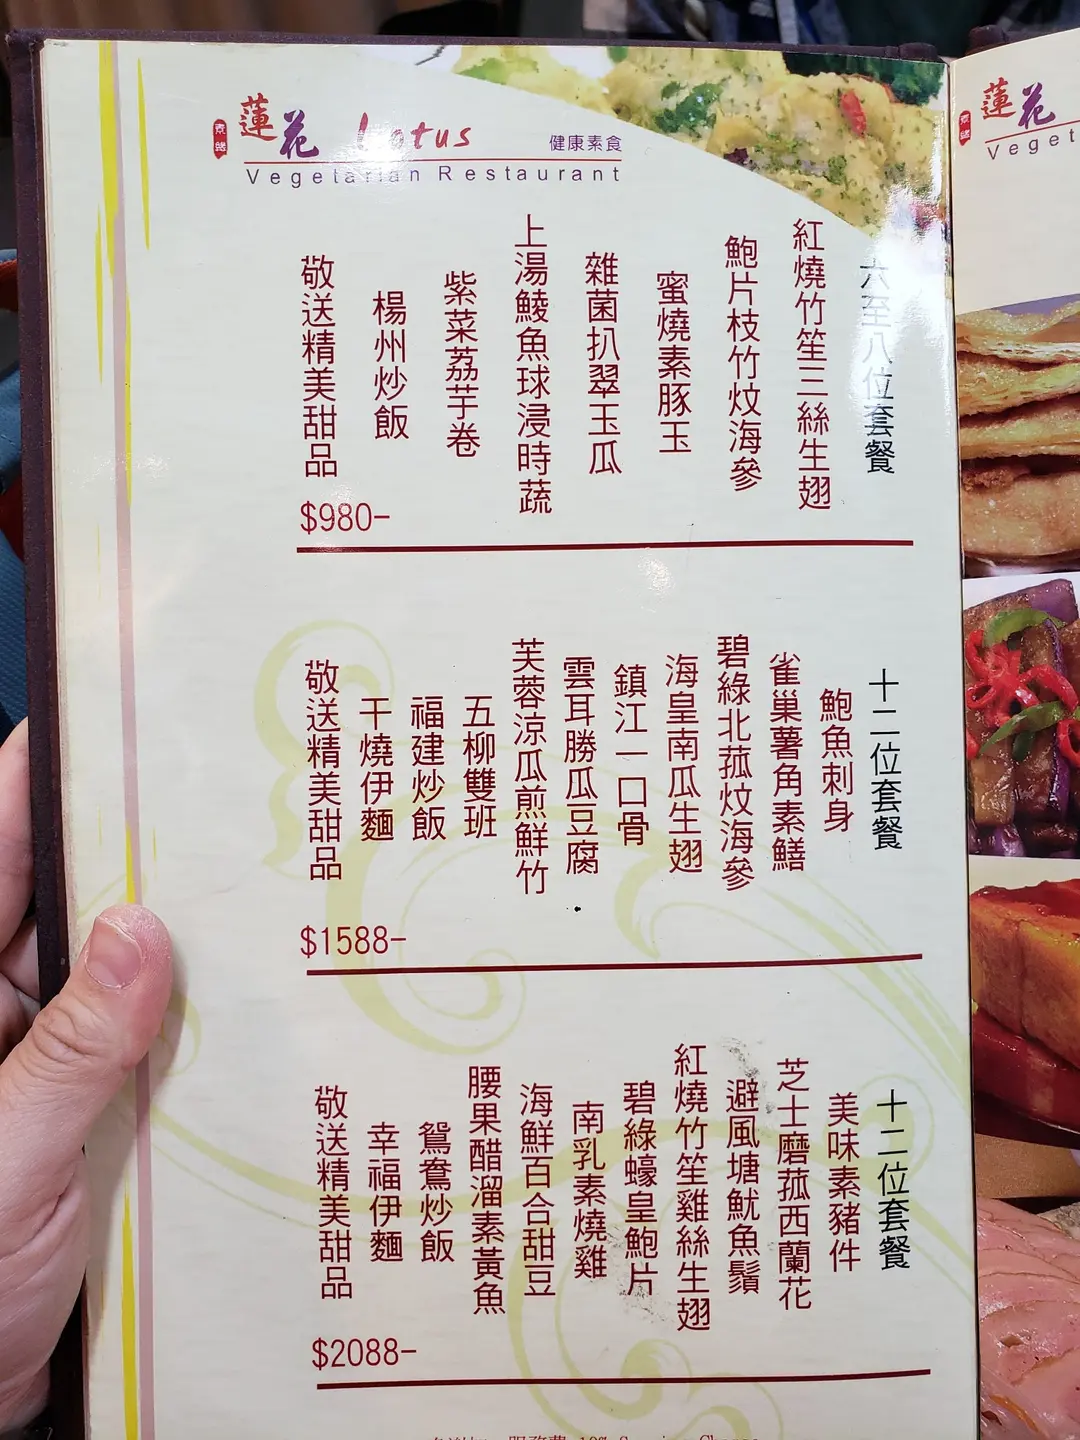 素踪
蓮花 Lotus 健康素食
Vegetarian Restaurant
六至八位套餐
紅燒竹笙三絲生翅
鮑片枝竹炆海參
蜜燒素豚玉
雜菌扒翠玉瓜
上湯鯪魚球浸時蔬
紫菜荔芋卷
楊州炒飯
敬送精美甜品
$980-
十二位套餐
鮑魚刺身
雀巢薯角素鱔
碧綠北菰炆海參
海皇南瓜生翅
鎮江一口骨
雲耳勝瓜豆腐
芙蓉涼瓜煎鮮竹
五柳雙班
福建炒飯
干燒伊麵
敬送精美甜品
$1588-
十二位套餐
美味素豬件
芝士磨菰西蘭花
避風塘魷魚鬚
紅燒竹笙雞絲生翅
碧綠蠔皇鮑片
南乳素燒雞
海鮮百合甜豆
腰果醋溜素黃魚
鴛鴦炒飯
幸福伊麵
敬送精美甜品
$2088-
蓮花
Veget